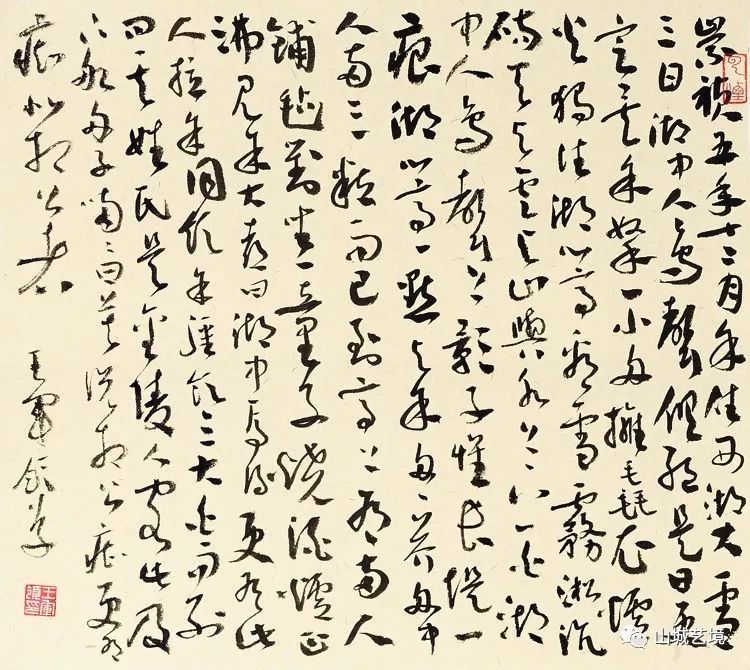 崇禎五年十二月余住西湖大雪
三日湖中人鳥聲俱絶是日更
定矣余拏一小舟擁毳衣爐
火獨往湖心亭看雪霧淞沆
碭天与雲与山與水上下一白湖
中人鳥聲上影子惟長堤一
痕湖心亭一點与余舟一芥舟中
人兩三粒而已到亭上有兩人
鋪氈對坐一童子燒酒爐正
沸見余大喜曰湖中焉得更有此
人拉余同飲余强飲三大白而别
問其姓氏是金陵人客此及
下船舟子喃喃曰莫説相公痴更有
痴似相公者
王軍
山城艺境